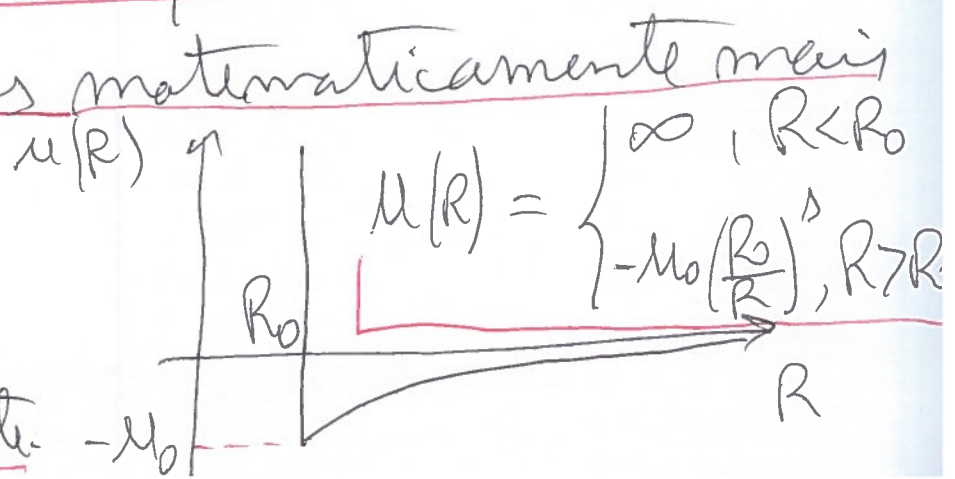 s matematicamente mais
u(R)
u(R) = { ∞ , R<R₀
-u₀(R₀/R)^s, R>R
R₀
R
te. -u₀